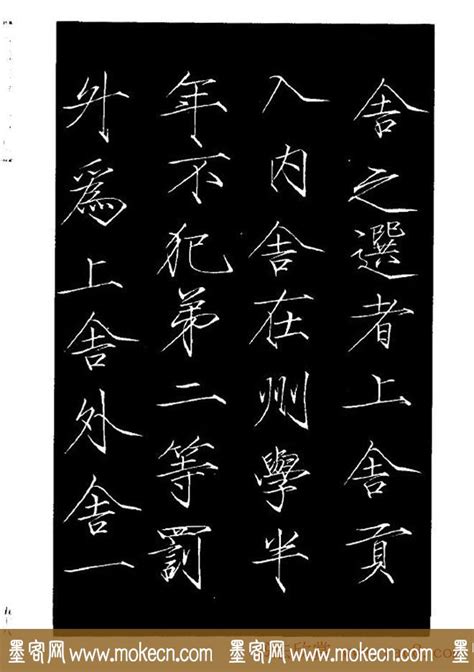 舍之選者上舍貢
入内舍在州學半
年不犯弟二等罰
升爲上舍外舍一
墨客网 www.mokecn.com 墨客网 www.mokecn.com 墨客网